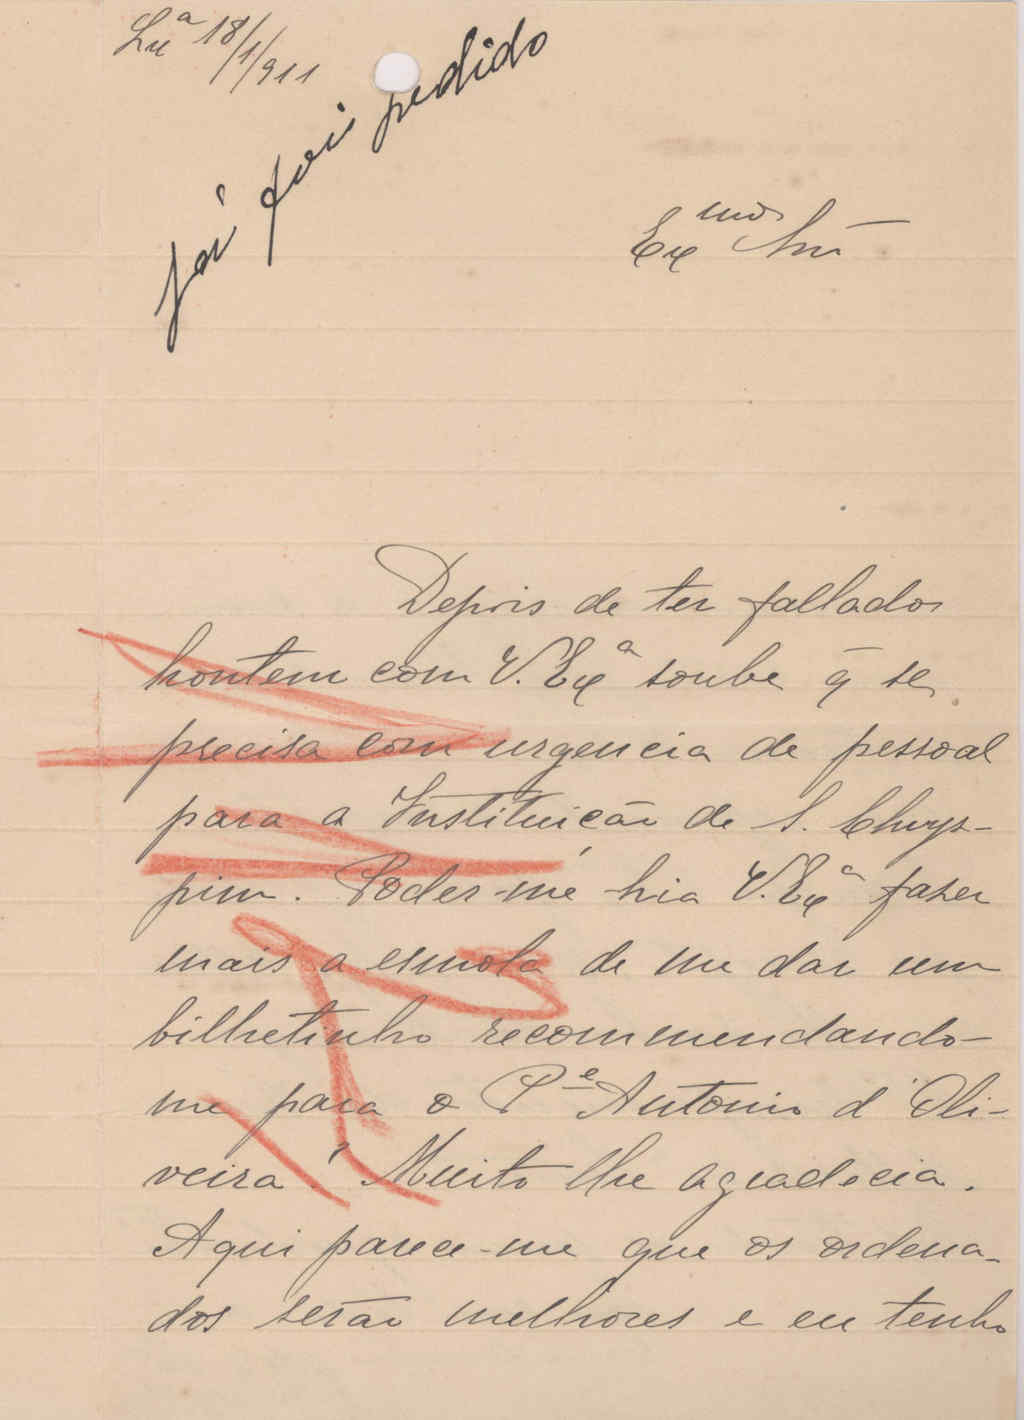 Lxª 18/1/911
já foi pedido
Exmo Snr
Depois de ter fallado
hontem com V. Exª soube q̃ se
precisa com urgencia de pessoal
para a Instituição de S. Chrys-
pim. Poder-me-hia V. Exª fazer
mais a esmola de me dar um
bilhetinho recommendando-
me para o Pe Antonio d'Oli-
veira? Muito lhe agradecia.
Aqui parece-me que os ordena-
dos serão melhores e eu tenho